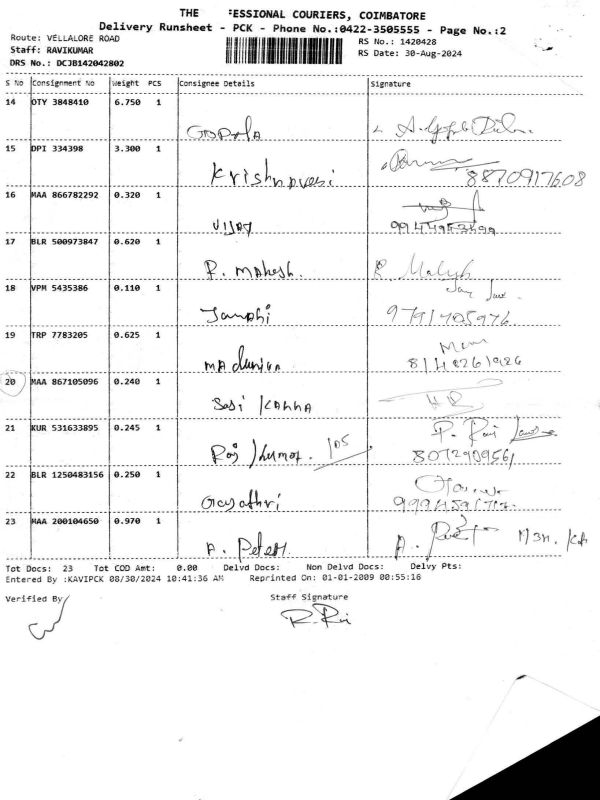 THE FESSIONAL COURIERS, COIMBATORE
Delivery Runsheet - PCK - Phone No.:0422-3505555 - Page No.:2
Route: VELLALORE ROAD RS No.: 1420428
Staff: RAVIKUMAR RS Date: 30-Aug-2024
DRS No.: DCJB142042802
S No Consignment No Weight PCS Consignee Details Signature
14 OTY 3848410 6.750 1
Gopala
15 DPI 334398 3.300 1
Krishnaveni 8870917608
16 MAA 866782292 0.320 1
Vijay
17 BLR 500973847 0.620 1
P. Mahesh.
18 VPM 5435386 0.110 1
Janani 9791705976
19 TRP 7783205 0.625 1
20 MAA 867105096 0.240 1
Sasi Kanna
21 KUR 531633895 0.245 1 P. Raj
Raj kumar. 8072909561
22 BLR 1250483156 0.250 1
Gayathri
23 MAA 200104650 0.970 1
A. Peter
Tot Docs: 23 Tot COD Amt: 0.00 Delvd Docs: Non Delvd Docs: Delvy Pts:
Entered By :KAVIPCK 08/30/2024 10:41:36 AM Reprinted On: 01-01-2009 00:55:16
Verified By Staff Signature